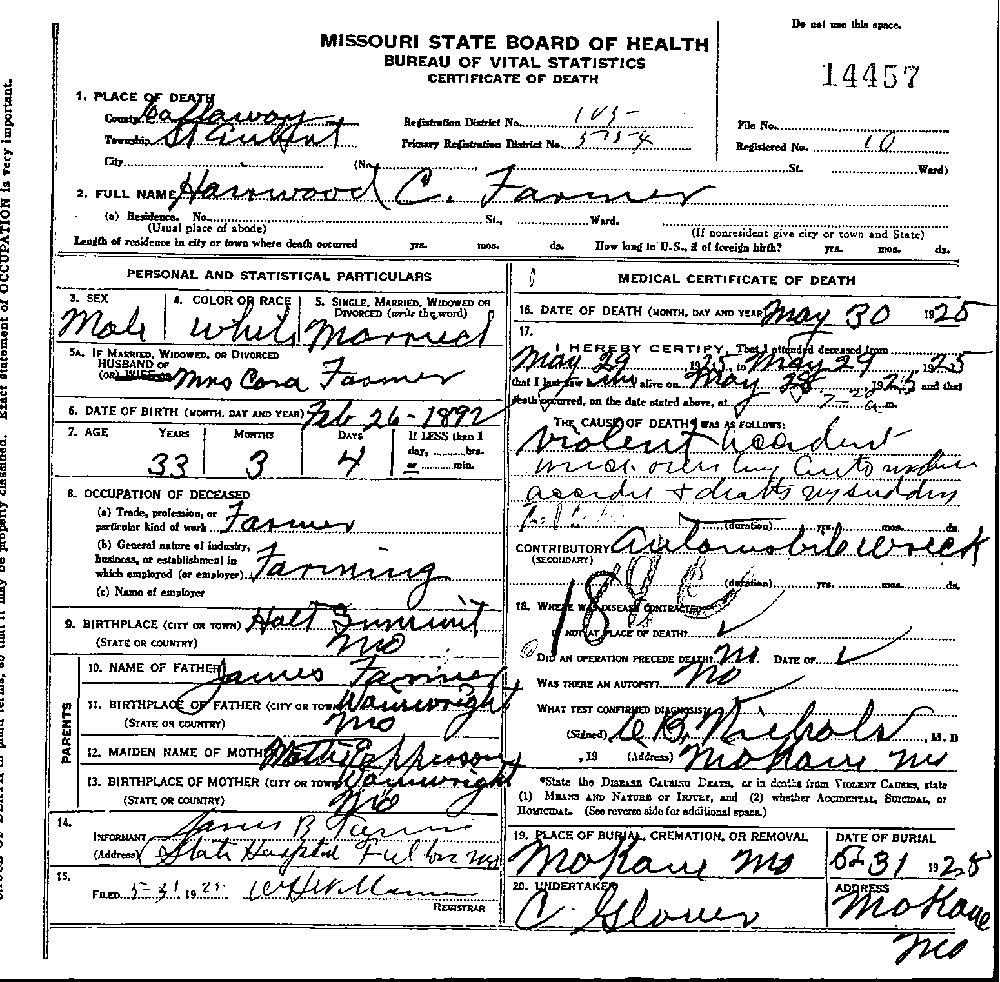 Do not use this space.
MISSOURI STATE BOARD OF HEALTH
BUREAU OF VITAL STATISTICS
CERTIFICATE OF DEATH
14457
1. PLACE OF DEATH
County Callaway Registration District No. File No.
Township St Aubert Primary Registration District No. Registered No. 10
City (No. St. Ward)
2. FULL NAME Harrwood C. Farmer
(a) Residence. No. St., Ward.
(Usual place of abode) (If nonresident give city or town and State)
Length of residence in city or town where death occurred yrs. mos. ds. How long in U.S., if of foreign birth? yrs. mos. ds.
PERSONAL AND STATISTICAL PARTICULARS
3. SEX Male
4. COLOR OR RACE White
5. SINGLE, MARRIED, WIDOWED OR DIVORCED (write the word) Married
5A. IF MARRIED, WIDOWED, OR DIVORCED
HUSBAND OF
(OR) WIFE OF Mrs Cora Farmer
6. DATE OF BIRTH (MONTH, DAY AND YEAR) Feb 26-1892
7. AGE YEARS MONTHS DAYS If LESS than 1 day, hrs. or min.
33 3 4
8. OCCUPATION OF DECEASED
(a) Trade, profession, or particular kind of work Farmer
(b) General nature of industry, business, or establishment in which employed (or employer) Farming
(c) Name of employer
9. BIRTHPLACE (CITY OR TOWN) Holt Summit
(STATE OR COUNTRY) Mo
PARENTS
10. NAME OF FATHER James Farmer
11. BIRTHPLACE OF FATHER (CITY OR TOWN) Wainwright
(STATE OR COUNTRY) Mo
12. MAIDEN NAME OF MOTHER Epperson
13. BIRTHPLACE OF MOTHER (CITY OR TOWN) Wainwright
(STATE OR COUNTRY) Mo
14.
INFORMANT James B Farmer
(Address) State Hospital Fulton Mo
15.
FILED 5-31 1925
REGISTRAR
MEDICAL CERTIFICATE OF DEATH
16. DATE OF DEATH (MONTH, DAY AND YEAR) May 30 1925
17.
I HEREBY CERTIFY, That I attended deceased from
May 29 1925, to May 29 1925
that I last saw him alive on May 28 1925 and that
death occurred, on the date stated above, at m.
THE CAUSE OF DEATH* WAS AS FOLLOWS:
Violent Accident
over by Auto
& death
(duration) yrs. mos. ds.
CONTRIBUTORY Automobile wreck
(SECONDARY)
(duration) yrs. mos. ds.
18. WHERE WAS DISEASE CONTRACTED
IF NOT AT PLACE OF DEATH?
DID AN OPERATION PRECEDE DEATH? No. DATE OF
WAS THERE AN AUTOPSY? No
WHAT TEST CONFIRMED DIAGNOSIS?
(Signed) B. Nichols, M.D
, 19 (Address) Mokane Mo
*State the DISEASE CAUSING DEATH, or in deaths from VIOLENT CAUSES, state
(1) MEANS AND NATURE OF INJURY, and (2) whether ACCIDENTAL, SUICIDAL, or
HOMICIDAL. (See reverse side for additional space.)
19. PLACE OF BURIAL, CREMATION, OR REMOVAL DATE OF BURIAL
Mokane Mo 5-31 1925
20. UNDERTAKER ADDRESS
C. Glover Mokane
Mo